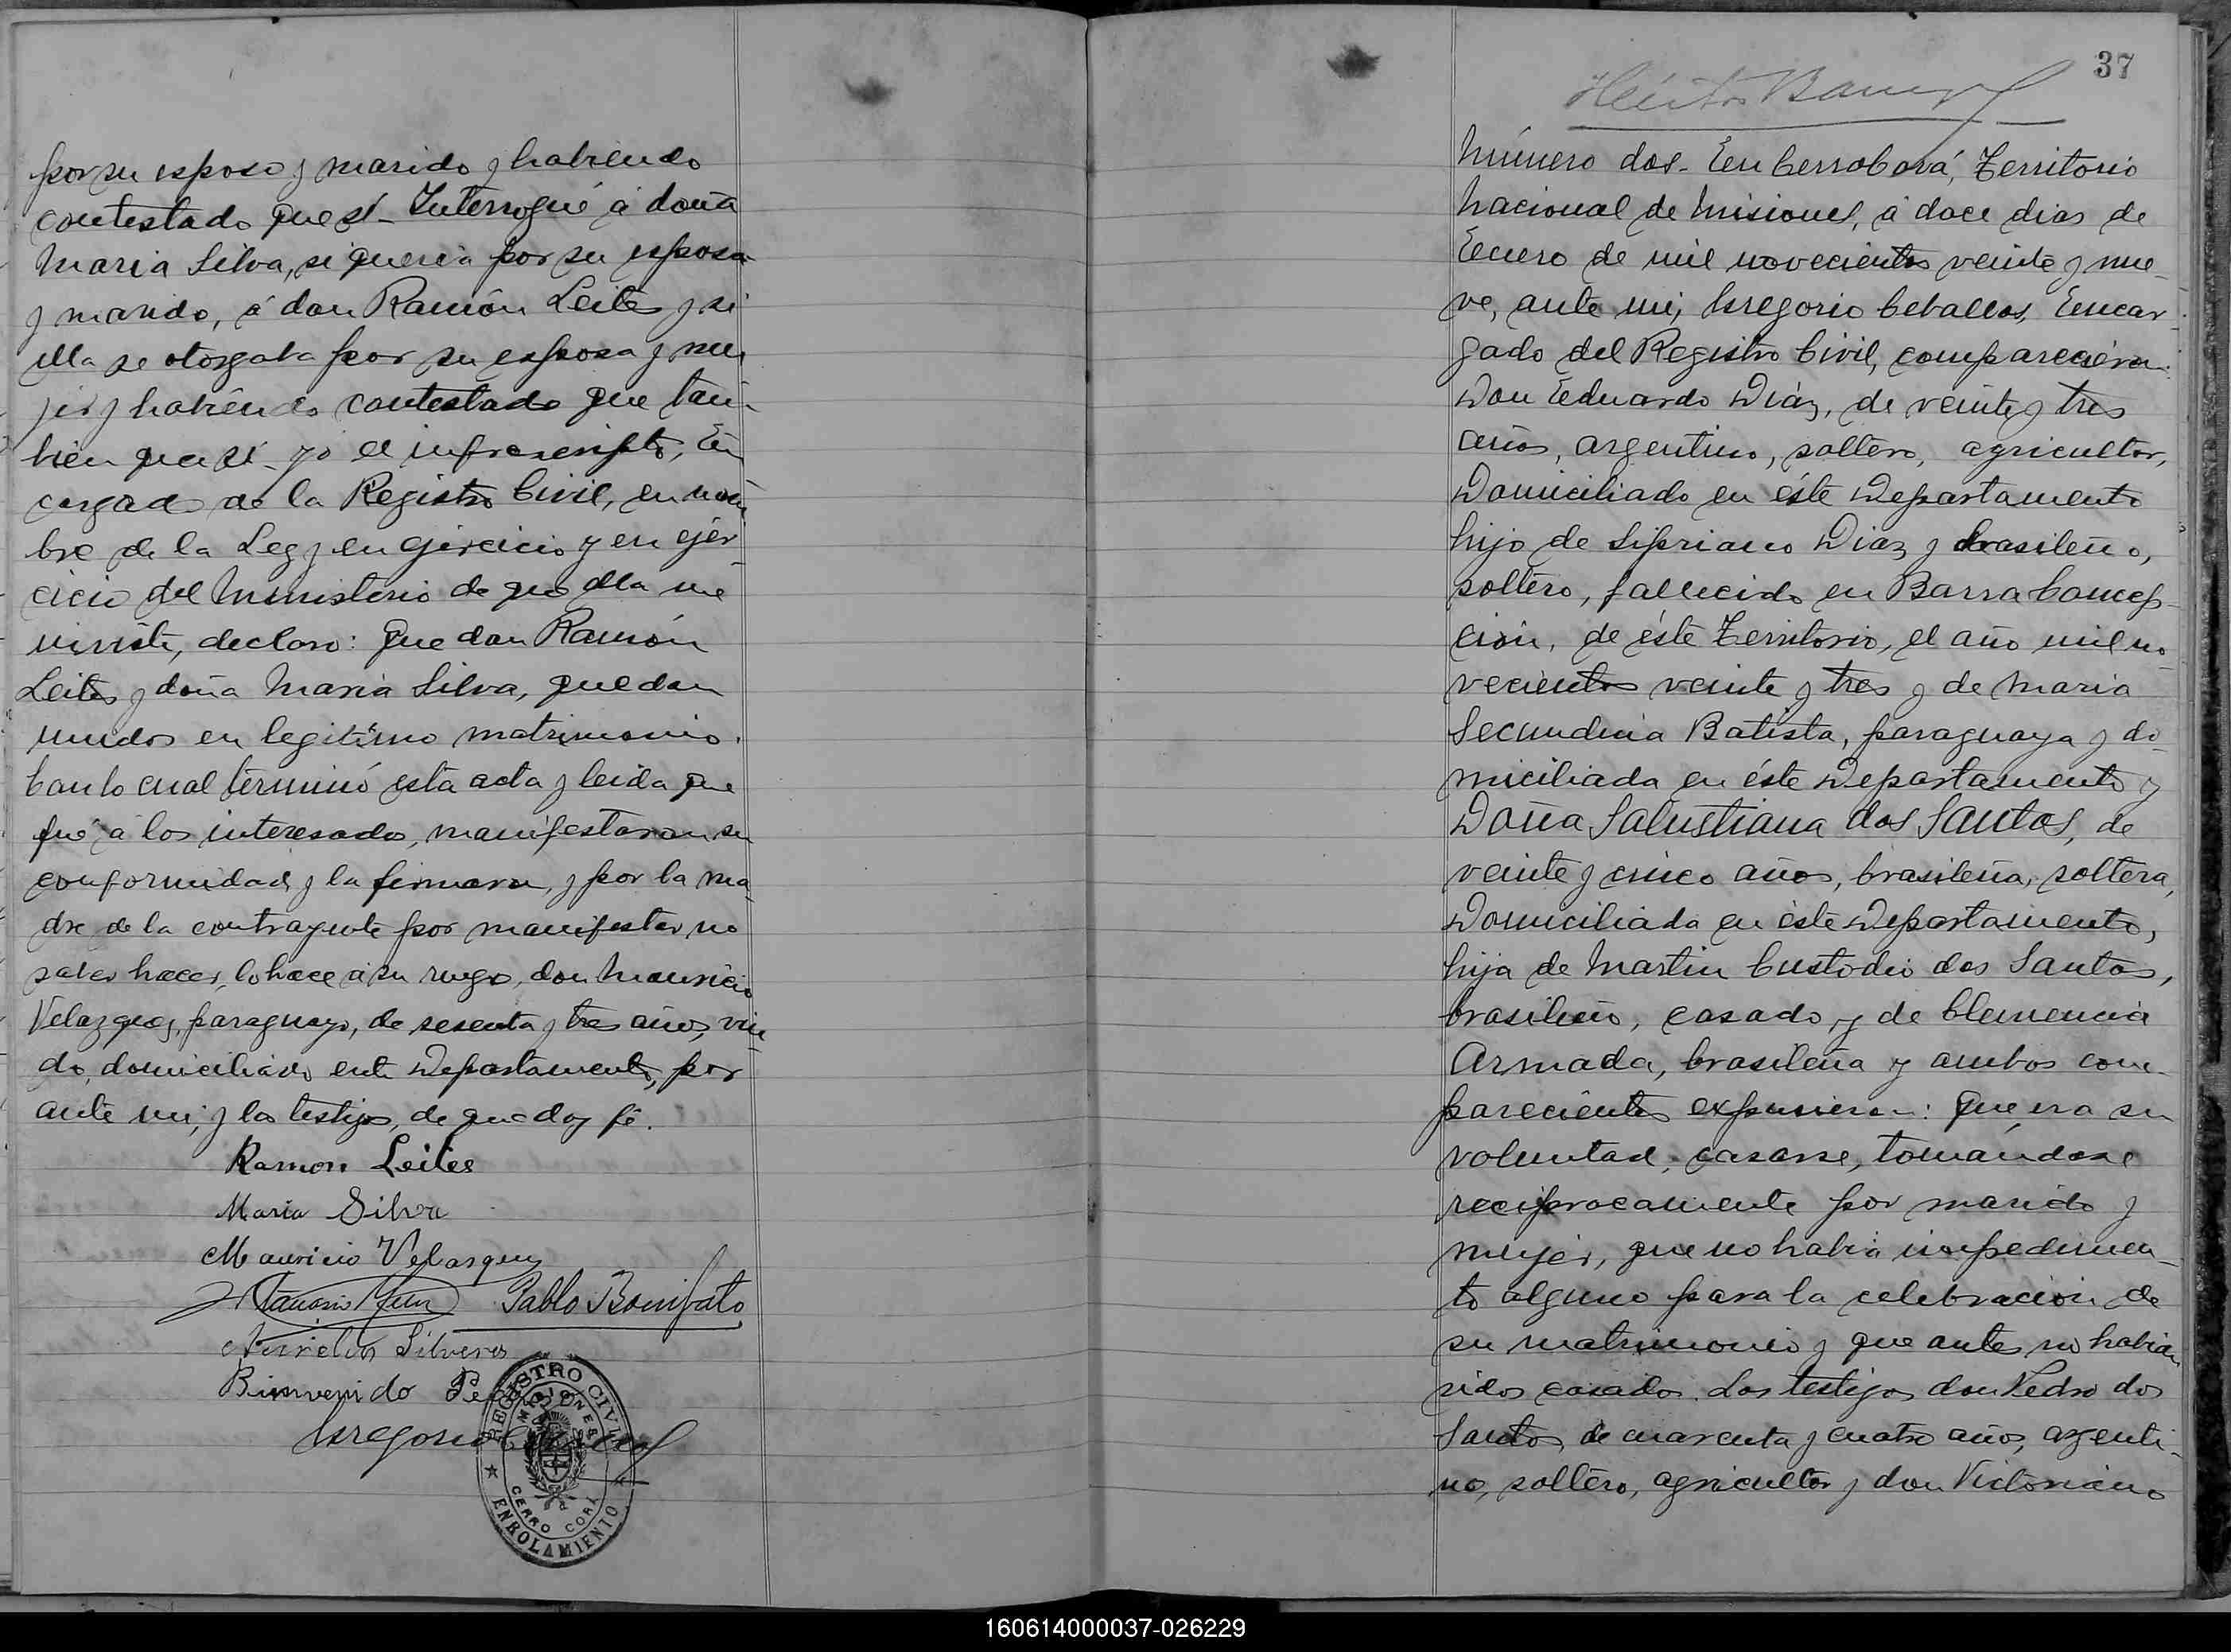 por su esposo y marido y habiendo
contestado que sí - Interrogué á doña
Maria Silva, si queria por su esposo
y marido, á don Ramón Leites y si
ella se otorgaba por su esposa y mu
jer y habiendo contestado que tam-
bien que sí - yo el infrascripto, En
cargado de la Registro Civil, en nom
bre de la Ley y en ejercicio y en ejer
cicio del Ministerio de que ella me
inviste, declaro: Que don Ramón
Leites y doña Maria Silva, quedan
unidos en legitimo matrimonio.
Con lo cual terminó esta acta y leida que
fué á los interesados, manifestaron su
conformidad y la firmaron, y por la ma
dre de la contrayente por manifestar no
saber hacer, lo hace á su ruego, don Mauricio
Velazquez, paraguayo, de sesenta y tres años, viu
do, domiciliado este Departamento, por
ante mi, y los testigos, de que doy fé.
Ramon Leites
Maria Silva
Mauricio Velasquez
Pablo Bonifato
Aurelio Silvero
Bienvenido
Gregorio
REGISTRO CIVIL
MISIONES
CERRO CORÁ
ENROLAMIENTO
37
Número dos - En Cerro Corá, Territorio
Nacional de Misiones, á doce dias de
Enero de mil novecientos veinte y nue-
ve, ante mi, Gregorio Ceballos, Encar-
gado del Registro Civil, comparecieron:
Don Eduardo Diaz, de veinte y tres
años, argentino, soltero, agricultor,
Domiciliado en éste Departamento
hijo de Sipriano Diaz y brasileño,
soltero, fallecido en Barra Concep-
cion, de éste Territorio, el año mil no-
vecientos veinte y tres y de Maria
Secundina Batista, paraguaya y do-
miciliada en éste Departamento y
Doña Salustiana dos Santos, de
veinte y cinco años, brasileña, soltera,
Domiciliada en éste Departamento,
hija de Martin Custodio dos Santos,
brasileño, casado, y de Clemencia
Armada, brasileña y ambos com-
parecientes expusieron: Que era su
voluntad, casarse, tomándose
reciprocamente por marido y
mujer, que no habia impedimen-
to alguno para la celebracion de
su matrimonio y que antes no habian
sidos casados. Los testigos don Pedro dos
Santos, de cuarenta y cuatro años, argenti-
no, soltero, agricultor y don Victoriano
160614000037-026229